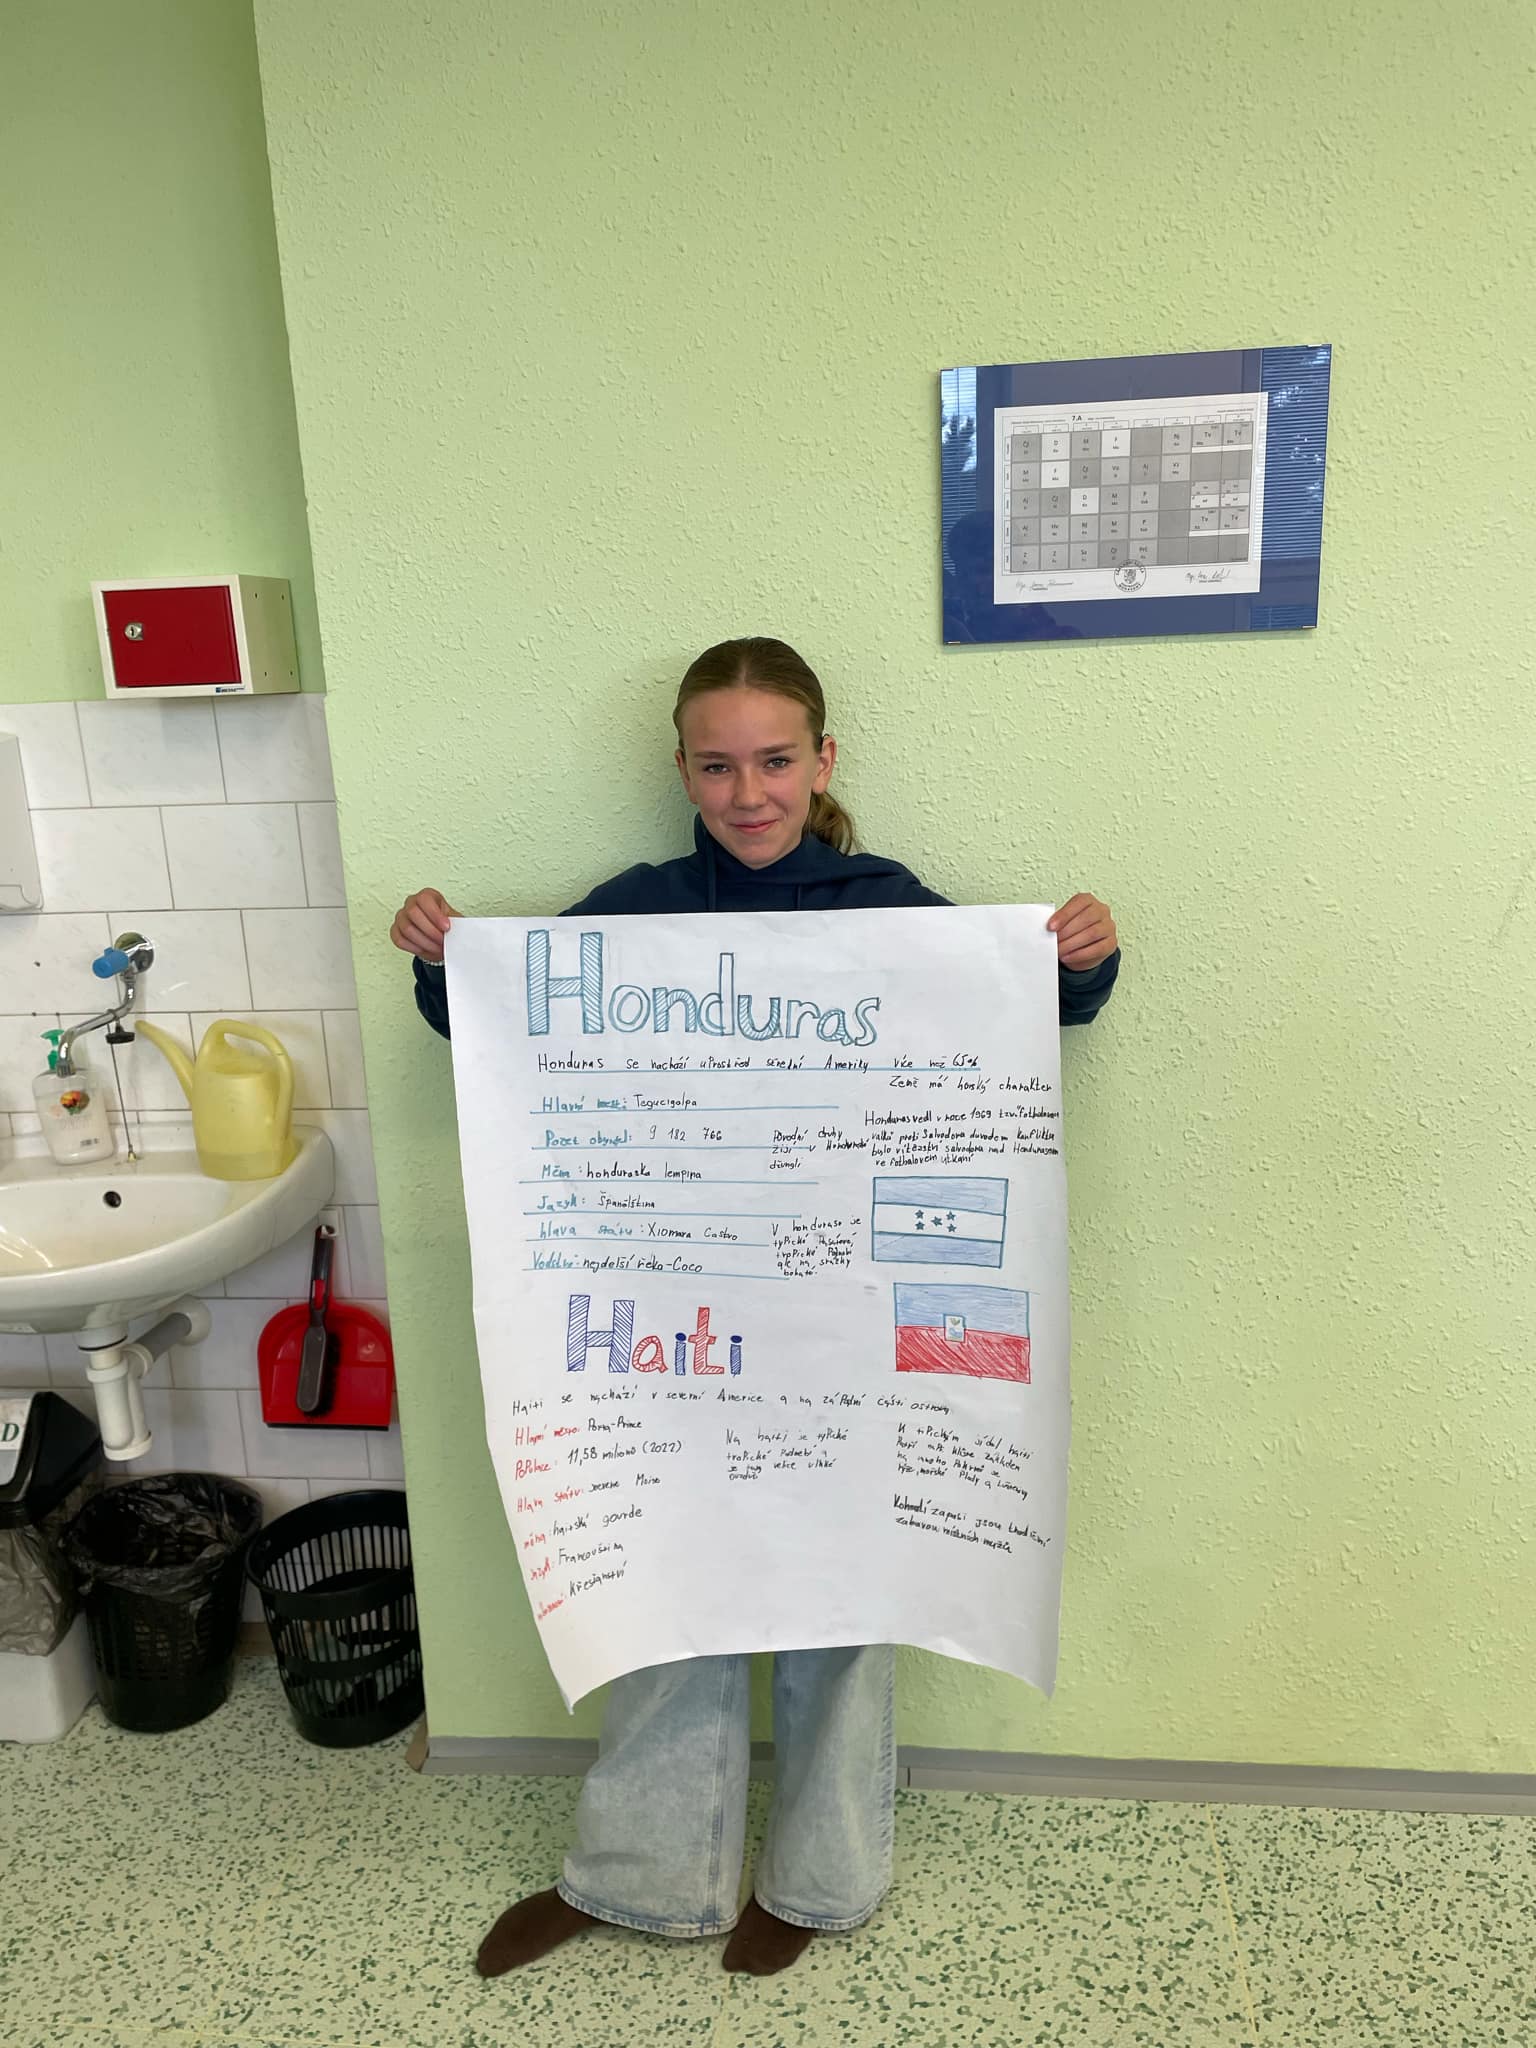 7.A
Honduras
Honduras se nachází uprostřed střední Ameriky více než 65%
Země má horský charakter
Hlavní měst: Tegucigalpa
Počet obyvatel: 9 182 766
Měna: honduraska lempira
Jazyk: španělština
hlava státu: Xiomara Castro
Vodstvo: nejdelší řeka-Coco
Původní druhy
žijí v Honduraské
džungli
Honduras vedl v roce 1969 tzv. fotbalovou
válku proti Salvadoru důvodem konfliktu
bylo vítězství salvadoru nad Hondurasem
ve fotbalovém utkání
V hondurasu je
typické
tropické Podnebí
ale na srážky
bohaté.
Haiti
Haiti se nachází v severní Americe a na západní části ostrova
Hlavní město: Porta-Prince
PoPulace: 11,58 milionů (2022)
Hlava státu: Moise
měna: haitská gourde
Jazyk: Francouština
Křesťanství
Na haiti je tyPické
tropické Podnebí a
je tam velice vlhké
K tiPickým jídel haiti
Patří
na mnoho Pokrmů se
rýže, mořské Plody a
Kohoutí zápasi jsou tradiční
zabavou místních mužů